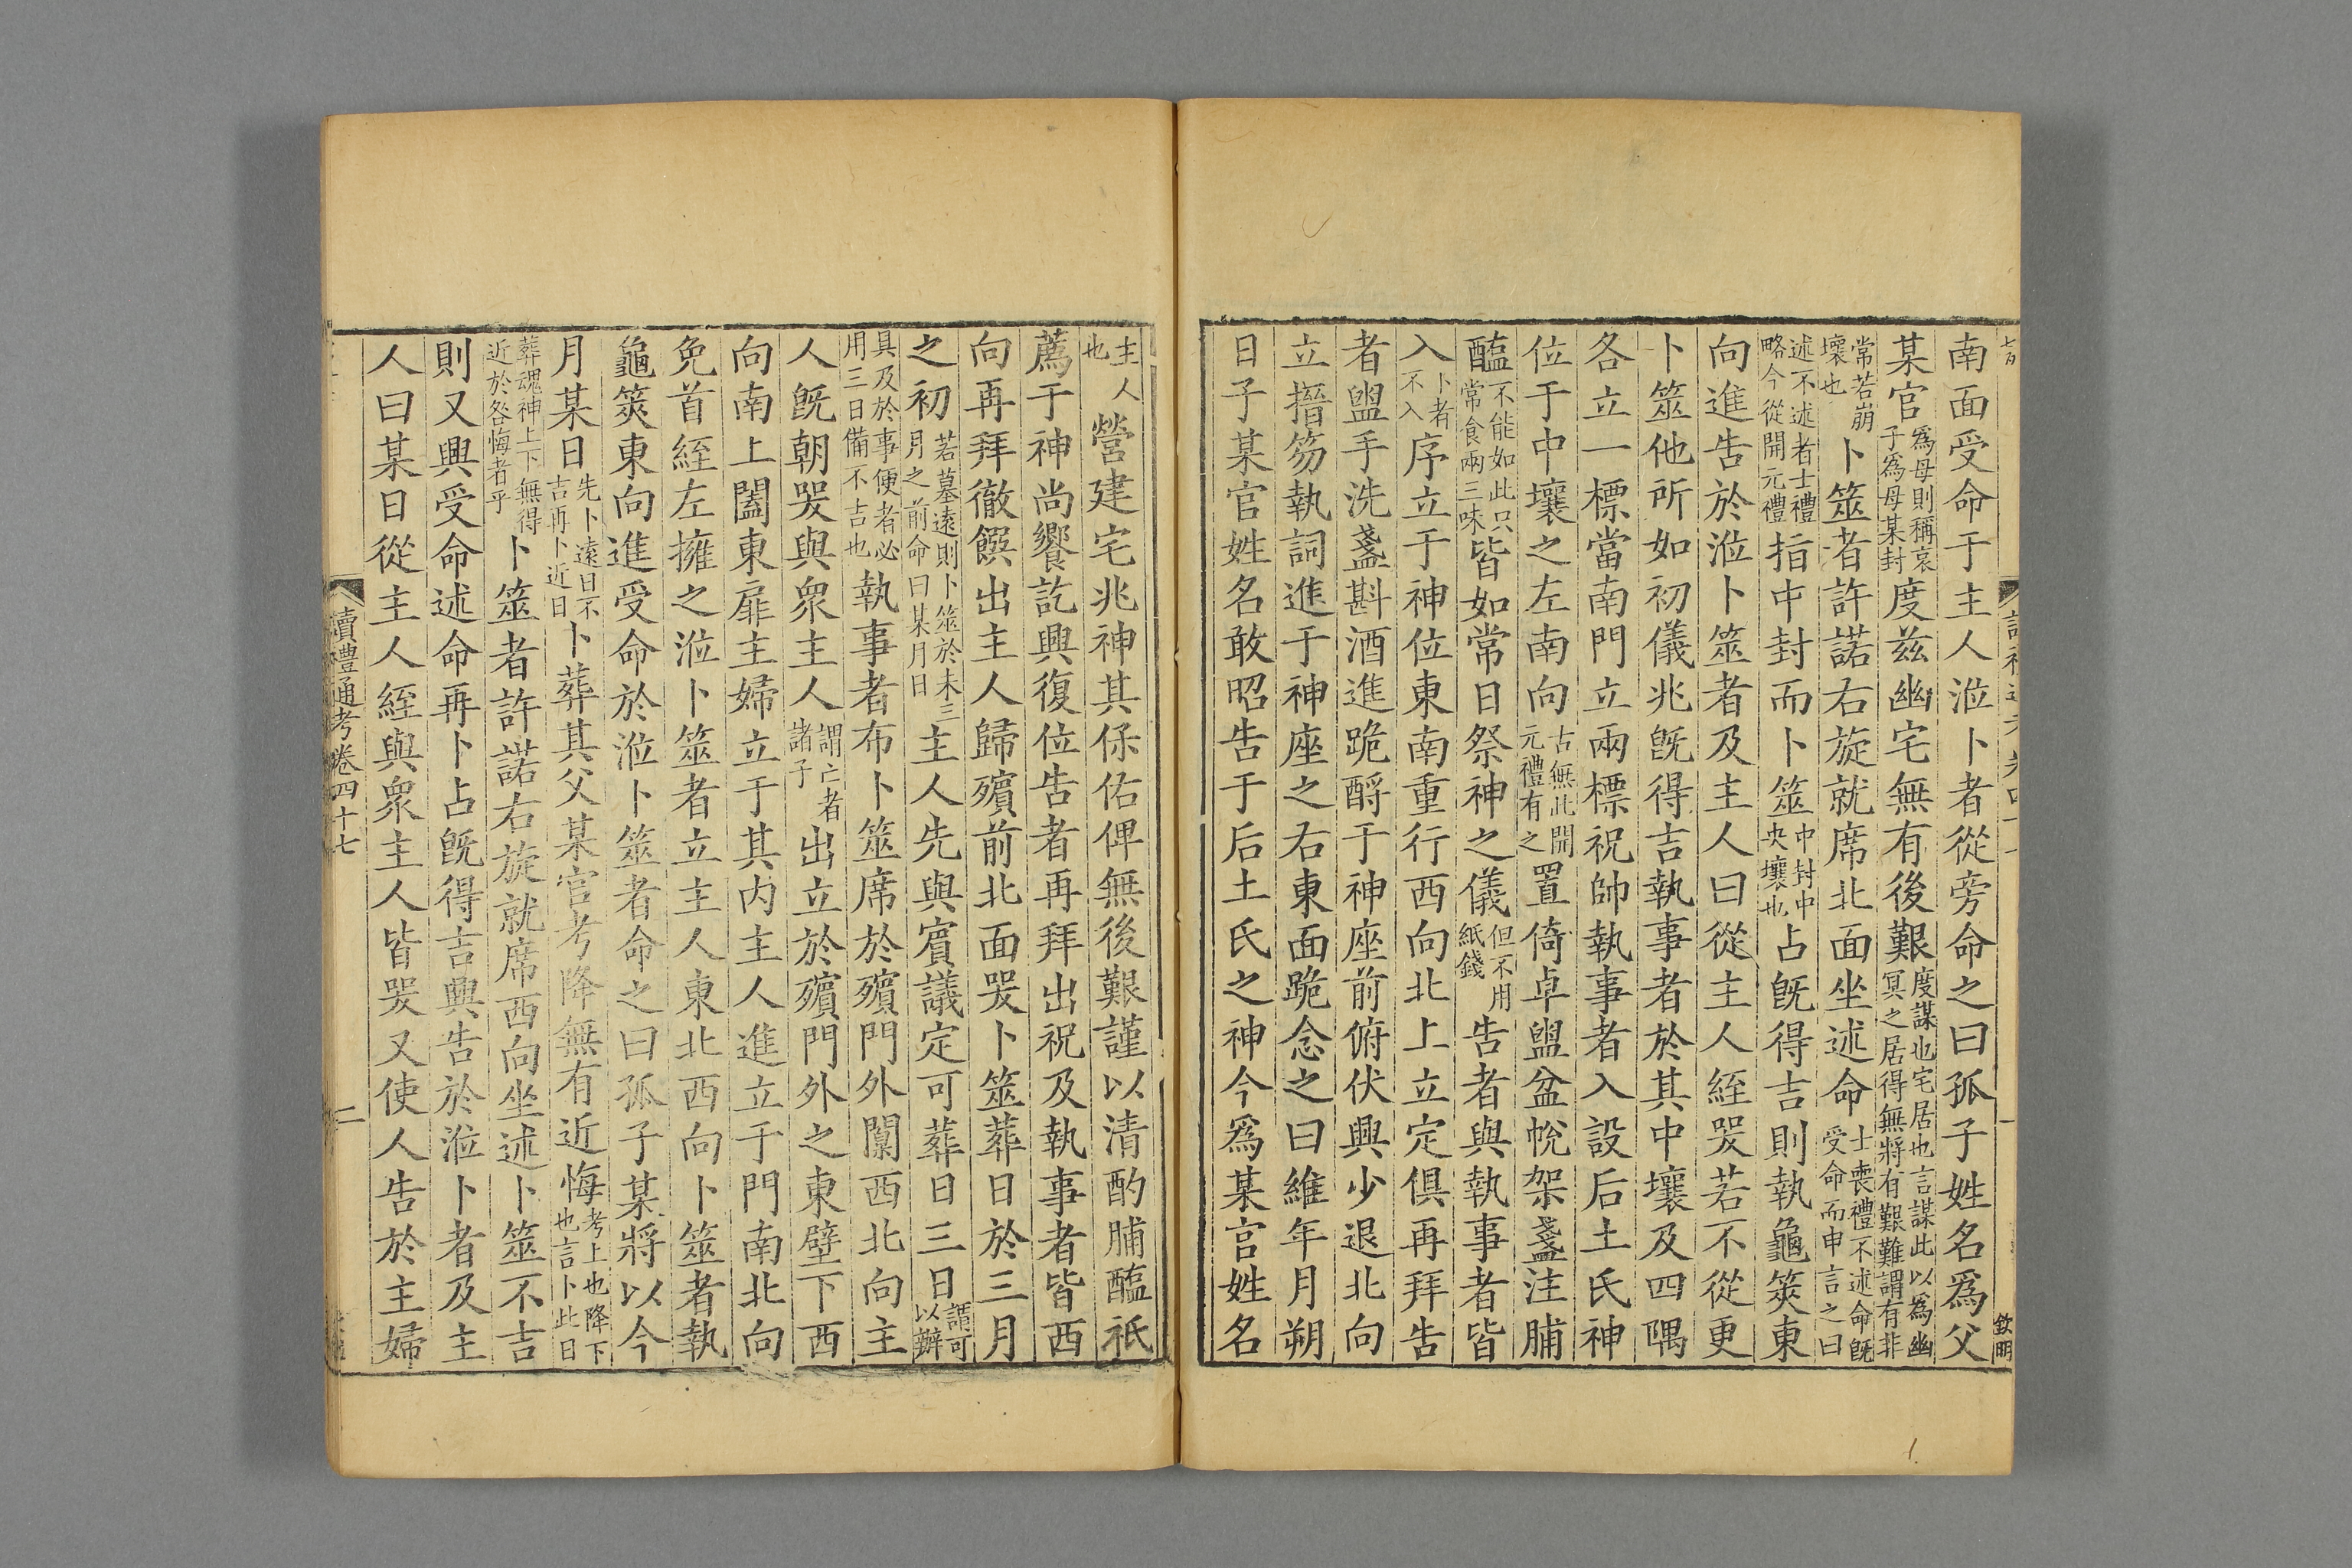 南面受命于主人涖卜者從旁命之曰孤子姓名爲父
某官爲母則稱哀子爲母某封度茲幽宅無有後艱度謀也宅居也言謀此以爲幽冥之居得無將有艱難謂有非
常若崩壞也卜筮者許諾右旋就席北面坐述命士喪禮不述命旣受命而申言之曰
述不述者士禮略今從開元禮指中封而卜筮中封中央壤也占旣得吉則執龜筴東
向進告於涖卜筮者及主人曰從主人絰哭若不從更
卜筮他所如初儀兆旣得吉執事者於其中壤及四隅
各立一標當南門立兩標祝帥執事者入設后土氏神
位于中壤之左南向古無此開元禮有之置倚卓盥盆帨架盞注脯
醢不能如此只常食兩三味皆如常日祭神之儀但不用紙錢告者與執事者皆
入卜者不入序立于神位東南重行西向北上立定俱再拜告
者盥手洗盞斟酒進跪酹于神座前俯伏興少退北向
立搢笏執詞進于神座之右東面跪念之曰維年月朔
日子某官姓名敢昭告于后土氏之神今爲某官姓名
主人也營建宅兆神其保佑俾無後艱謹以清酌脯醢祇
薦于神尚饗訖興復位告者再拜出祝及執事者皆西
向再拜徹饌出主人歸殯前北面哭卜筮葬日於三月
之初若墓遠則卜筮於未三月之前命曰某月日主人先與賓議定可葬日三日謂可以辦
具及於事便者必用三日備不吉也執事者布卜筮席於殯門外闑西北向主
人旣朝哭與衆主人謂亡者諸子出立於殯門外之東壁下西
向南上闔東扉主婦立于其內主人進立于門南北向
免首絰左擁之涖卜筮者立主人東北西向卜筮者執
龜筴東向進受命於涖卜筮者命之曰孤子某將以今
月某日先卜遠日不吉再卜近日卜葬其父某官考降無有近悔考上也降下也言卜此日
葬魂神上下無得近於咎悔者乎卜筮者許諾右旋就席西向坐述卜筮不吉
則又興受命述命再卜占旣得吉興告於涖卜者及主
人曰某日從主人絰與衆主人皆哭又使人告於主婦
讀禮通考卷四十七
二
欽明